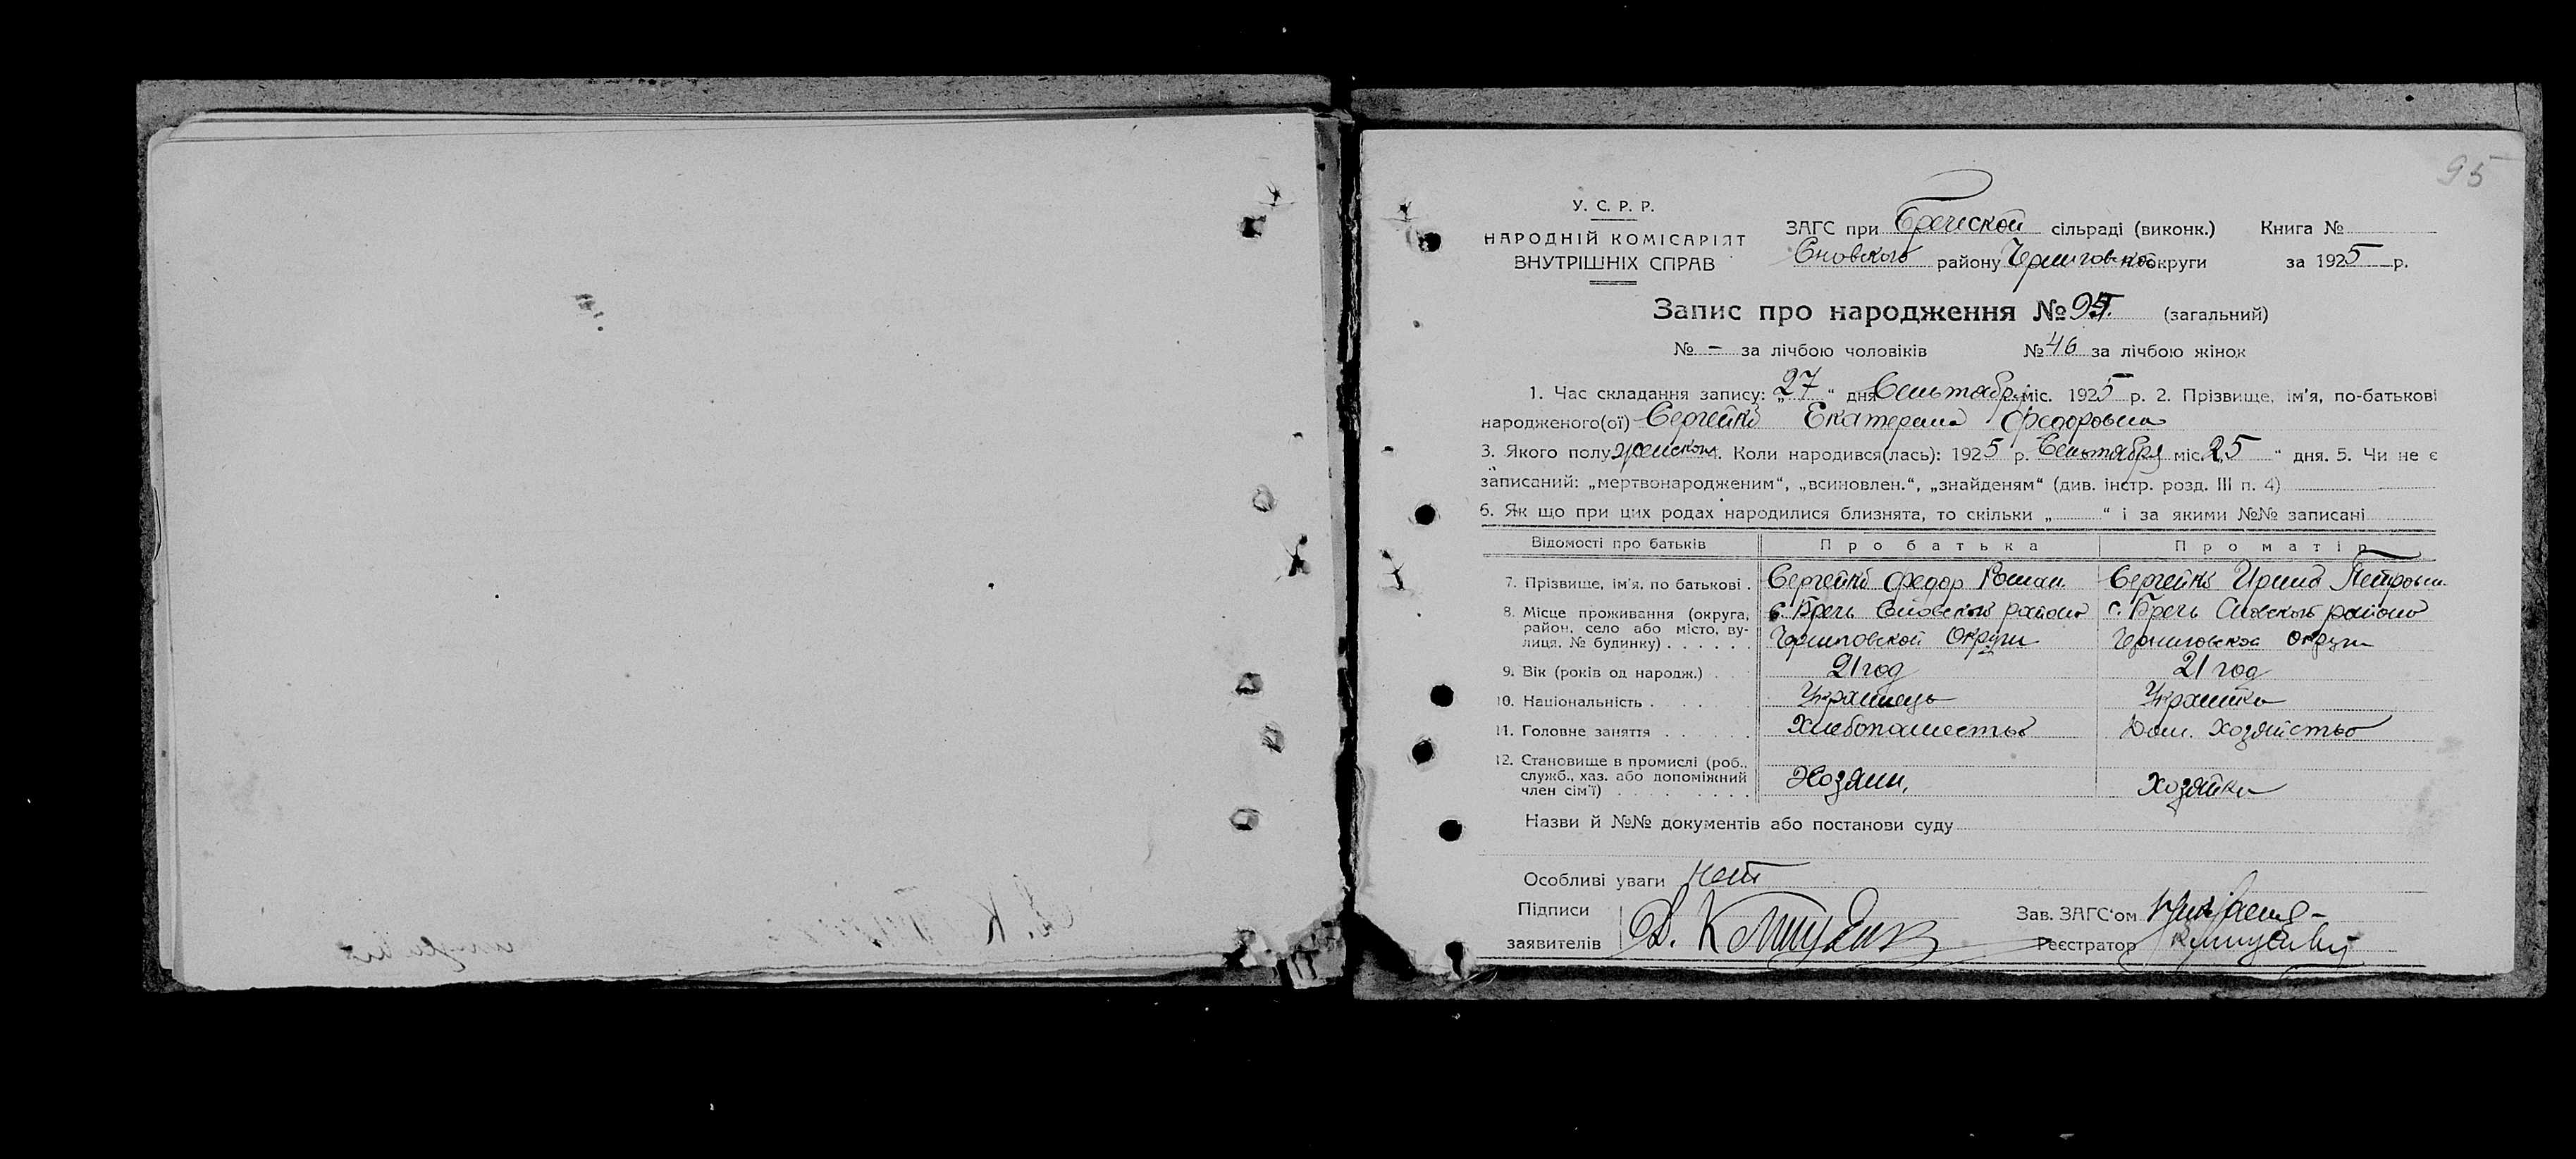 95
У. С. Р. Р.
НАРОДНІЙ КОМІСАРІЯТ
ВНУТРІШНІХ СПРАВ
ЗАГС при Бречской сільраді (виконк.) Книга №
Сновского району Черниговской округи за 1925 р.
Запис про народження № (загальний)
№ – за лічбою чоловіків № 46 за лічбою жінок
1. Час складання запису: „27“ дня Сентября міс. 1925 р. 2. Прізвище, ім'я, по-батькові
народженого(ої) Сергейко Екатерина Федоровна
3. Якого полу женскон 4. Коли народився(лась): 1925 р. Сентября міс. „25“ дня. 5. Чи не є
записаний: „мертвонародженим“, „всиновлен.“, „знайденям“ (див. інстр. розд. III п. 4)
6. Як що при цих родах народилися близнята, то скільки „ “ і за якими №№ записані
Відомості про батьків Про батька Про матір
7. Прізвище, ім'я, по батькові . Сергейко Федор Роман Сергейко Ирина Петровн
8. Місце проживання (округа, с. Бречь Сновского района с. Бречь Сновского района
район, село або місто, ву-
лиця, № будинку) . . . . . . Черниговской Округи Черниговской Округи
9. Вік (років од народж.) . . 21 год 21 год
10. Національність . . . . Украинець Украинка
11. Головне заняття . . . . . Хлебопашество Дом. Хозяйство
12. Становище в промислі (роб.,
служб., хаз. або допоміжний Хозяин, Хозяйка
член сім'ї) . . . . . .
Назви й №№ документів або постанови суду
Особливі уваги нет
Підписи Зав. ЗАГС'ом
заявителів Реєстратор